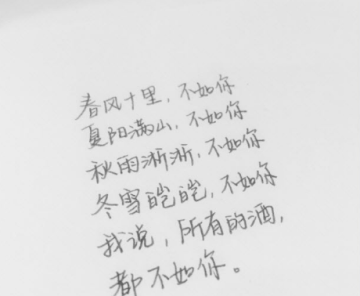 春风十里，不如你
夏阳满山，不如你
秋雨淅淅，不如你
冬雪皑皑，不如你
我说，所有的酒，
都不如你。